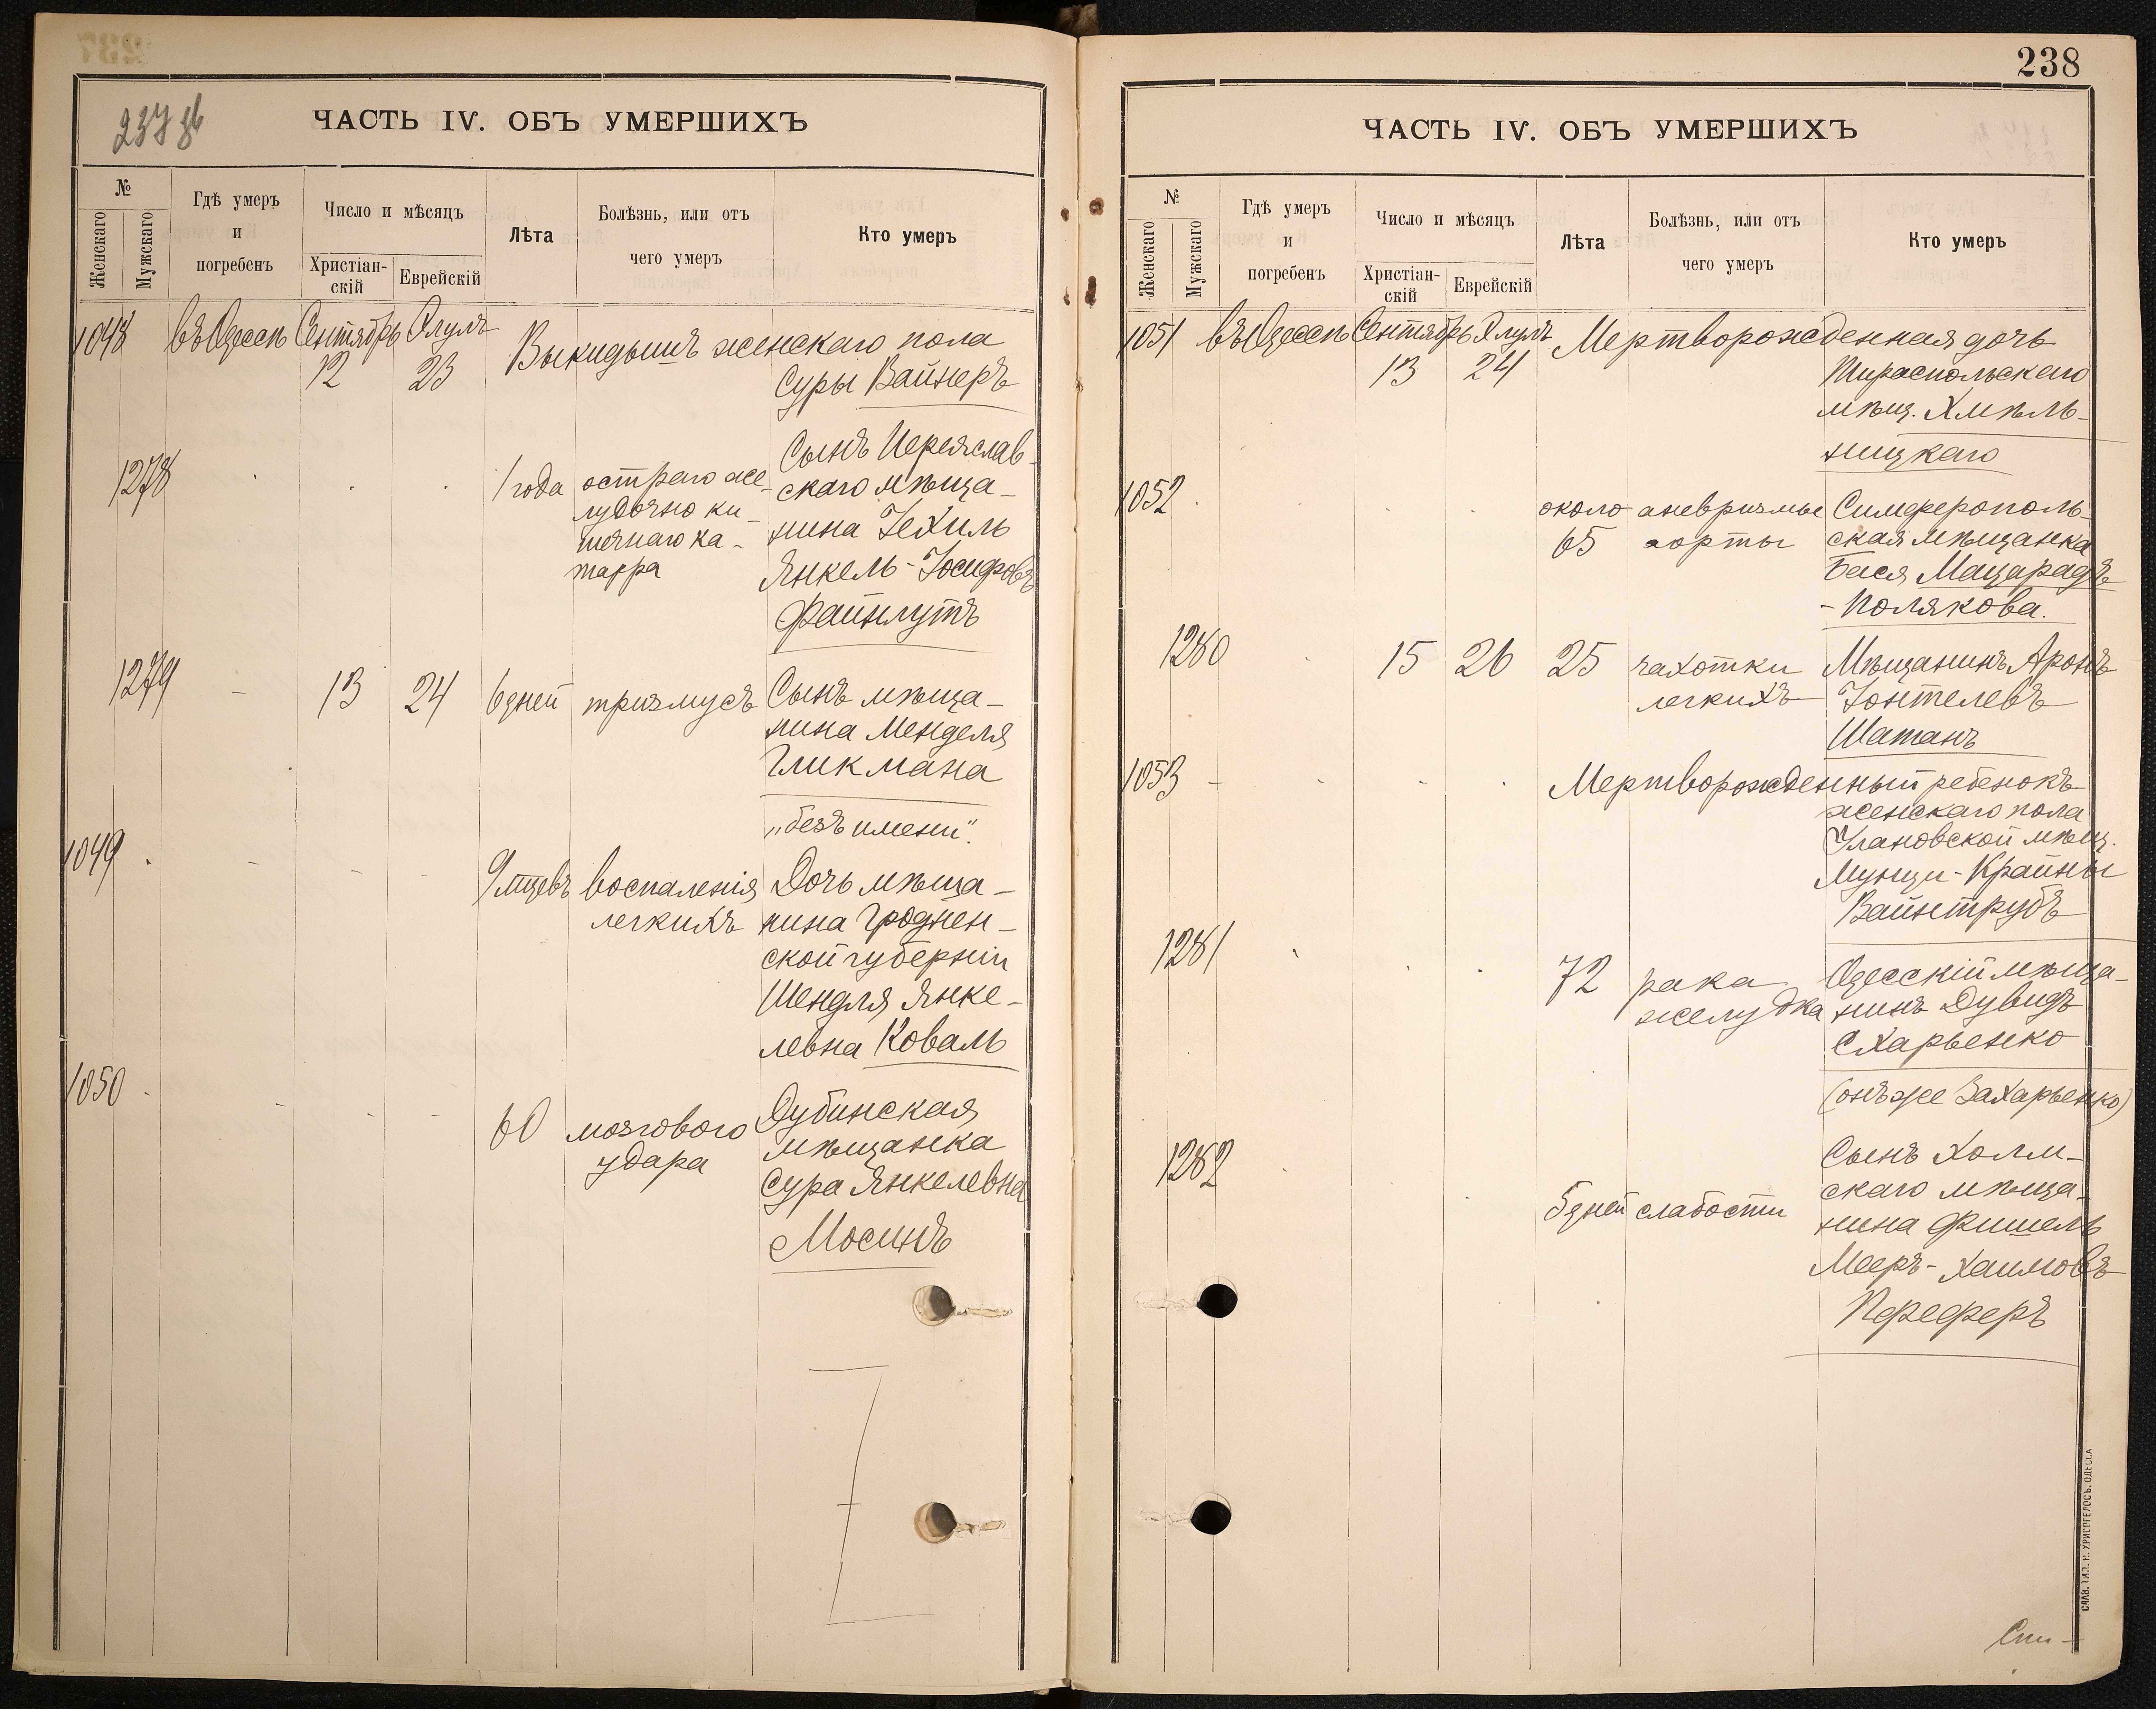 237 об
ЧАСТЬ IV. ОБЪ УМЕРШИХЪ
№
Женскаго
Мужскаго
Гдѣ умеръ
и
погребенъ
Число и мѣсяцъ
Христіан-
скій
Еврейскій
Лѣта
Болѣзнь, или отъ
чего умеръ
Кто умеръ
1048 въ Одессѣ Сентябрь Элулъ Выкидышъ женскаго пола
12 23 Суры Вайнеръ
1278 1 года остраго же-
лудочно ки-
шечнаго ка-
тарра
Сынъ Переяслав-
скаго мѣща-
нина Іехиль
Янкель-Іосифовъ
Файнгутъ
1279 - 13 24 6 дней тризмусъ Сынъ мѣща-
нина Менделя
Гликмана
„безъ имени".
1049 9 мцевъ воспаленія
легкихъ
Дочь мѣща-
нина Гроднен-
ской губерніи
Шендля Янке-
левна Коваль
1050 60 мозгового
удара
Дубинская
мѣщанка
Сура Янкелевна
Мосинъ
238
ЧАСТЬ IV. ОБЪ УМЕРШИХЪ
№
Женскаго
Мужскаго
Гдѣ умеръ
и
погребенъ
Число и мѣсяцъ
Христіан-
скій
Еврейскій
Лѣта
Болѣзнь, или отъ
чего умеръ
Кто умеръ
1051 въ Одессѣ Сентябрь Элулъ Мертворожденная дочь
13 24 Тираспольскаго
мѣщ. Хмѣль-
ницкаго
1052 около 65 аневризмы
аорты
Симферополь-
ская мѣщанка
Бася Мацарадзъ
-Полякова.
1280 15 26 25 чахотки
легкихъ
Мѣщанинъ Аронъ
Іонтелевъ
Шатанъ
1053 - Мертворожденный ребенокъ
женскаго пола
Улановской мѣщ.
Мунци-Крайны
Вайнтрубъ
1281 72 рака
желудка
Одесскій мѣща-
нинъ Дувидъ
Схарьенко
(онъ же Захарьенко)
1282 5 дней слабости
Сынъ Холм-
скаго мѣща-
нина Фишель
Мееръ-Хаимовъ
Пфеферъ
САЛВ. ТИП. Н. ХРИСОГЕЛОСЪ. ОДЕССА